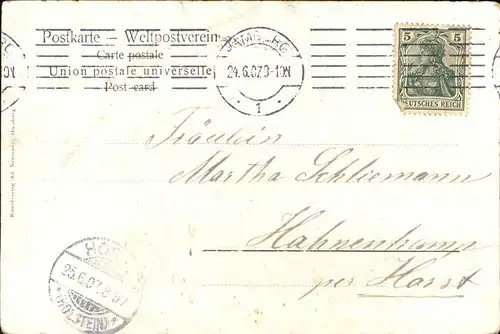 Postkarte – Weltpostverein
Carte postale
Union postale universelle
Post card
HAMBURG
24.6.07.3-10N
* 1 *
5 5
DEUTSCHES REICH
Fräulein
Martha Schliemann
Hahnenkamp
per Horst
HORST
25.6.07.8-9V
*(HOLSTEIN)*
Kunstverlag Ad.
Hamburg